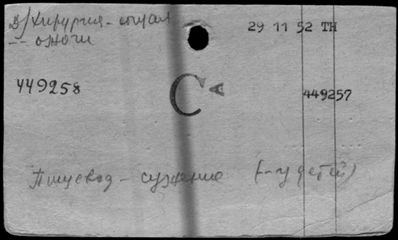 Д/Хирургия - общая
-- ожоги
29 11 52 ТН
449258
СА
449257
Пищевод - сужение (-- у детей)